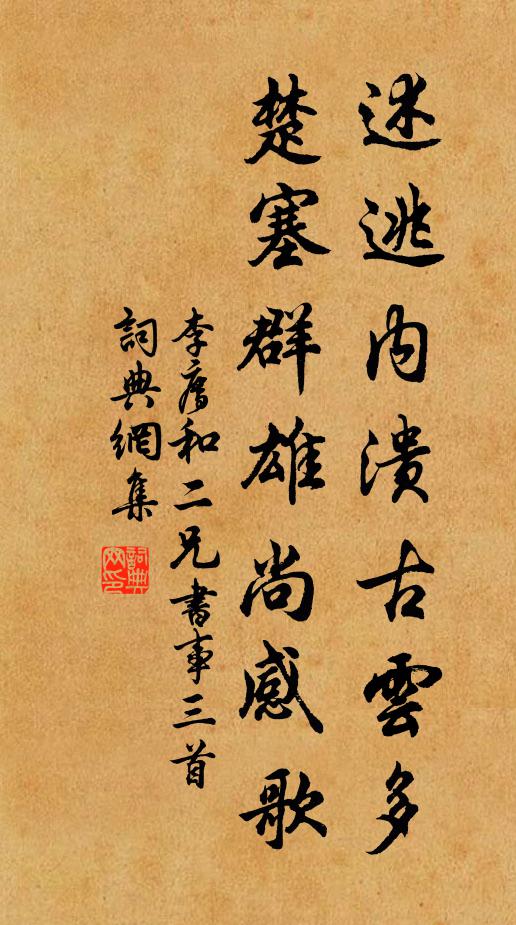 述逃内潰古雲多
楚塞群雄尚感歌
李膺和二兄書事三首
詞典網集
詞典网印